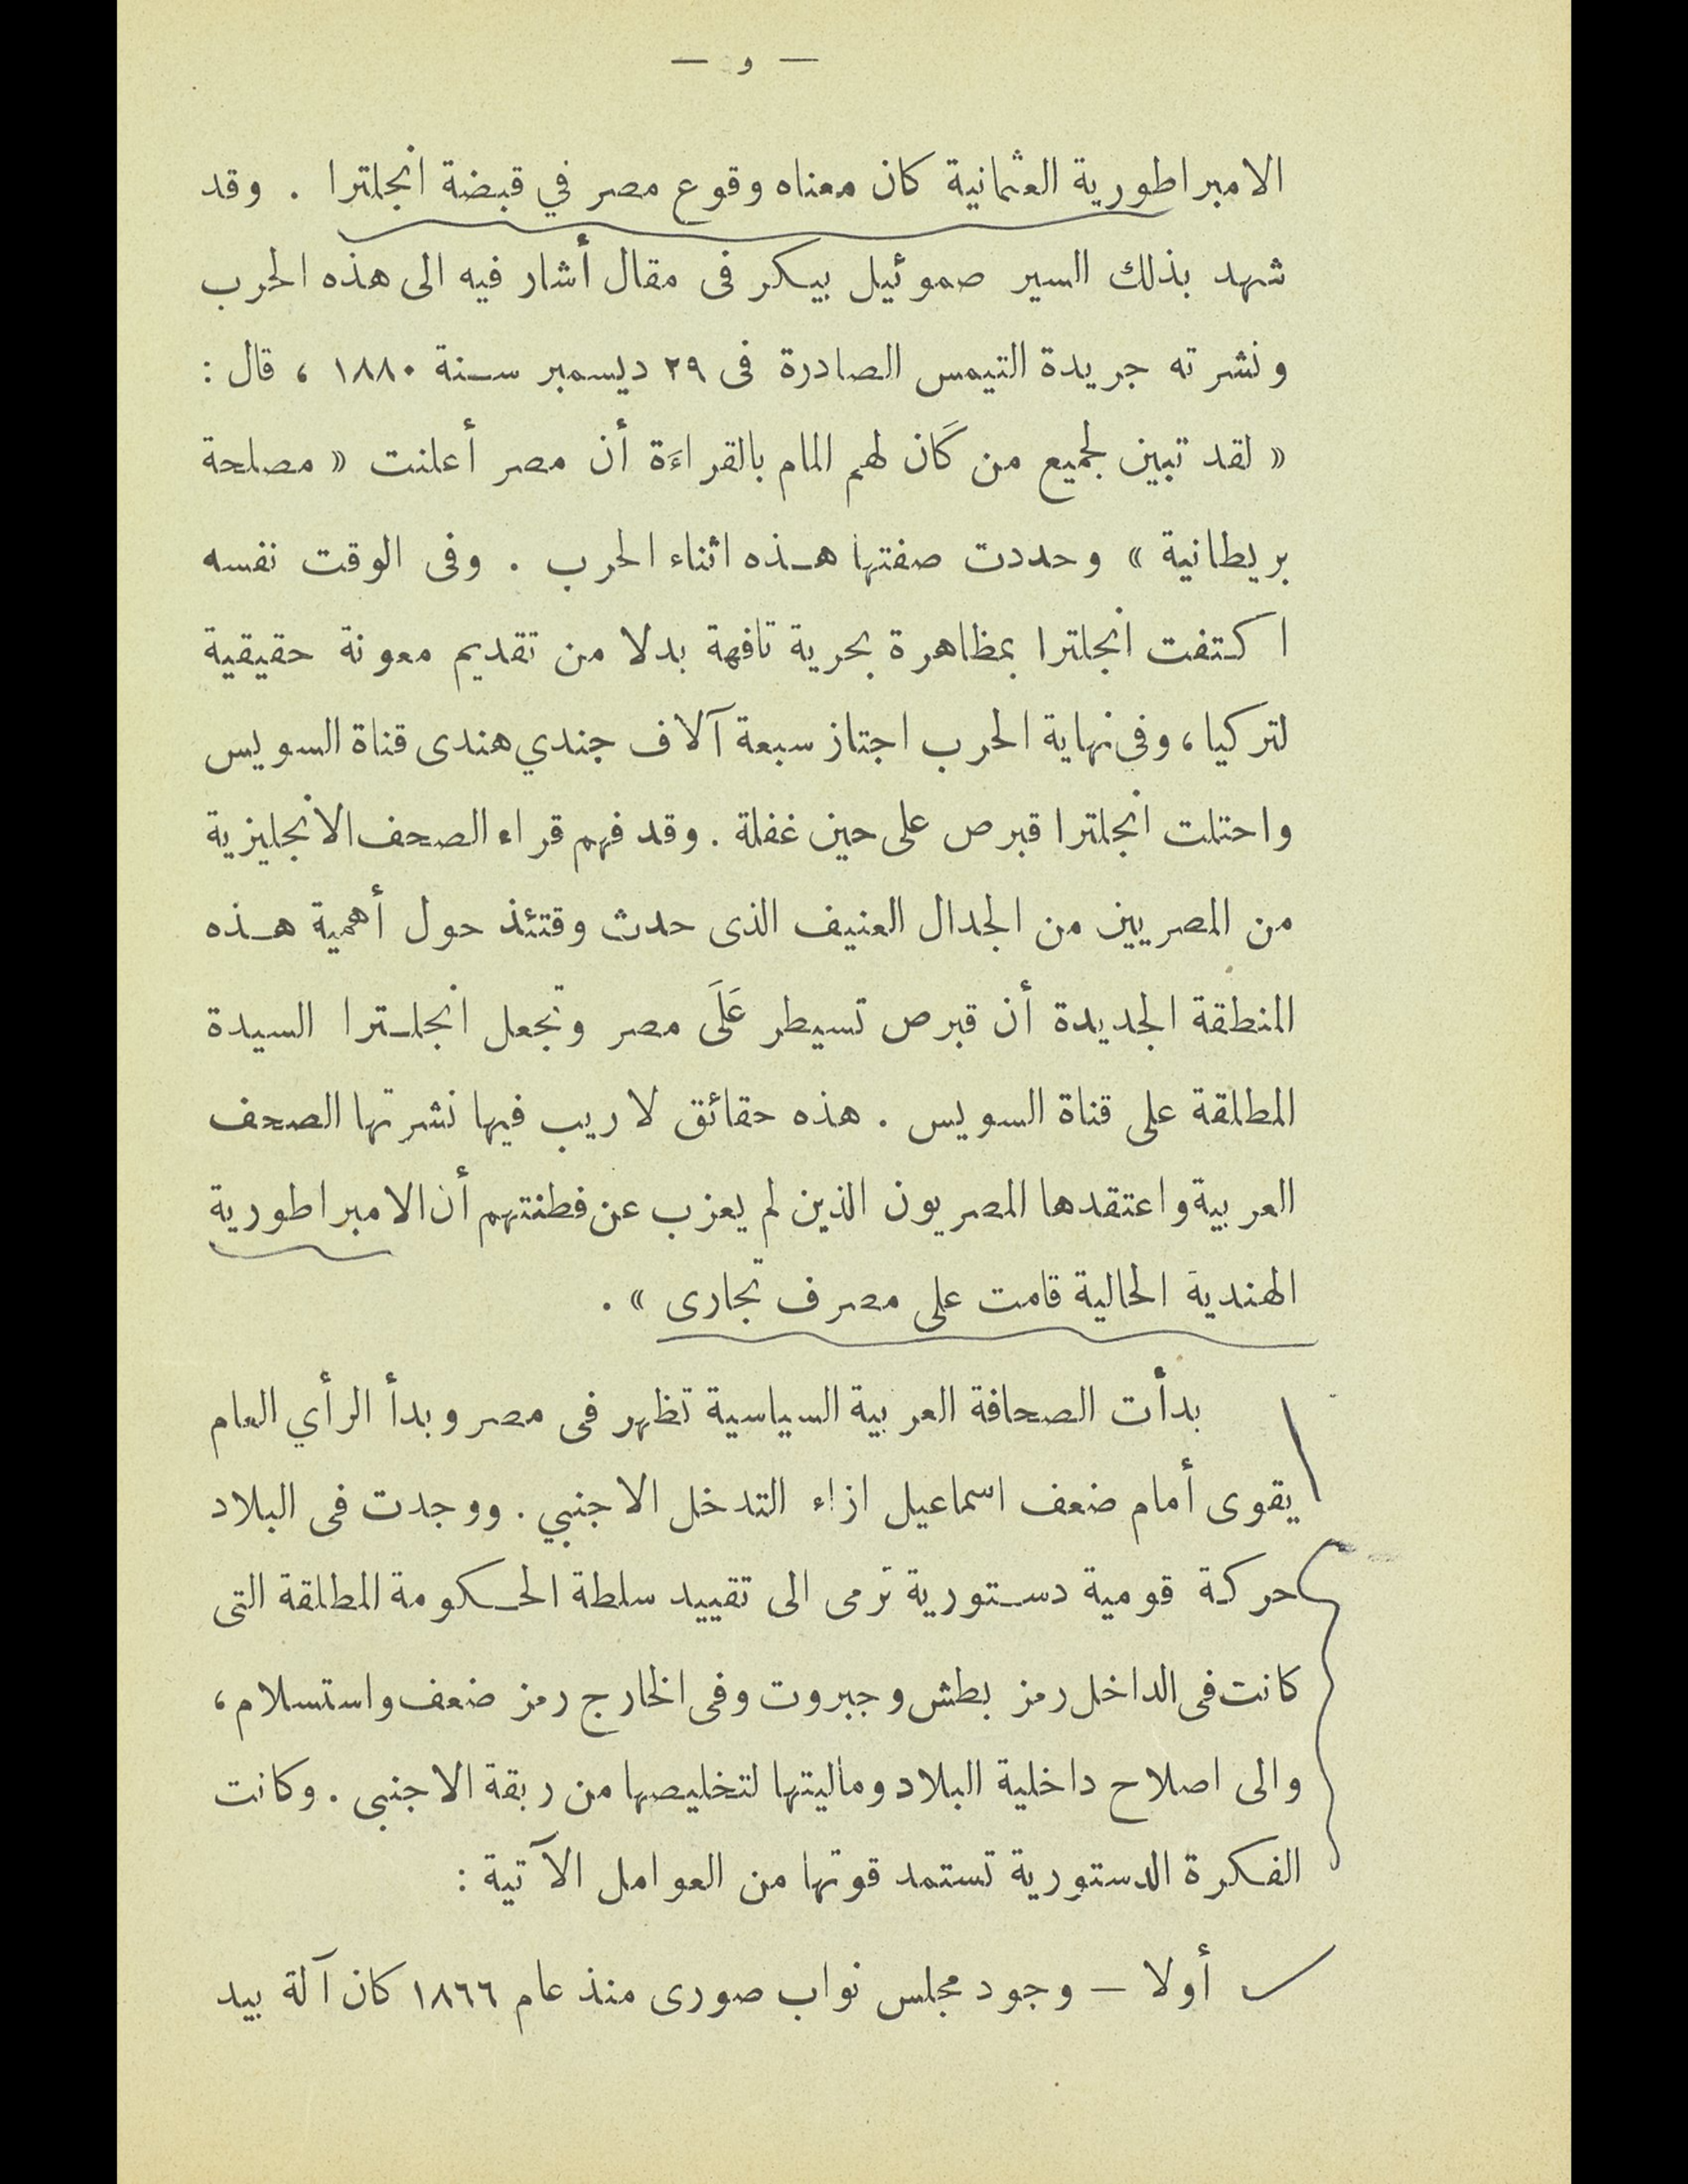 — و —
الامبراطورية العثمانية كان معناه وقوع مصر في قبضة انجلترا . وقد
شهد بذلك السير صموئيل بيكر فى مقال أشار فيه الى هذه الحرب
ونشرته جريدة التيمس الصادرة فى ٢٩ ديسمبر سنة ١٨٨٠ ، قال :
« لقد تبين لجميع من كَان لهم المام بالقراءَة أن مصر أعلنت « مصلحة
بريطانية » وحددت صفتها هذه اثناء الحرب . وفى الوقت نفسه
اكتفت انجلترا بمظاهرة بحرية تافهة بدلا من تقديم معونة حقيقية
لتركيا ، وفى نهاية الحرب اجتاز سبعة آلاف جندي هندى قناة السويس
واحتلت انجلترا قبرص على حين غفلة . وقد فهم قراء الصحف الانجليزية
من المصريين من الجدال العنيف الذى حدث وقتئذ حول أهمية هذه
المنطقة الجديدة أن قبرص تسيطر عَلَى مصر وتجعل انجلترا السيدة
المطلقة على قناة السويس . هذه حقائق لا ريب فيها نشرتها الصحف
العربية واعتقدها المصريون الذين لم يعزب عن فطنتهم أن الامبراطورية
الهندية الحالية قامت على مصرف تجارى » .
بدأت الصحافة العربية السياسية تظهر فى مصر وبدأ الرأي العام
يقوى أمام ضعف اسماعيل ازاء التدخل الاجنبي . ووجدت فى البلاد
حركة قومية دستورية ترمى الى تقييد سلطة الحكومة المطلقة التى
كانت فى الداخل رمز بطش وجبروت وفى الخارج رمز ضعف واستسلام ،
والى اصلاح داخلية البلاد وماليتها لتخليصها من ربقة الاجنبى . وكانت
الفكرة الدستورية تستمد قوتها من العوامل الآتية :
أولا — وجود مجلس نواب صورى منذ عام ١٨٦٦ كان آلة بيد